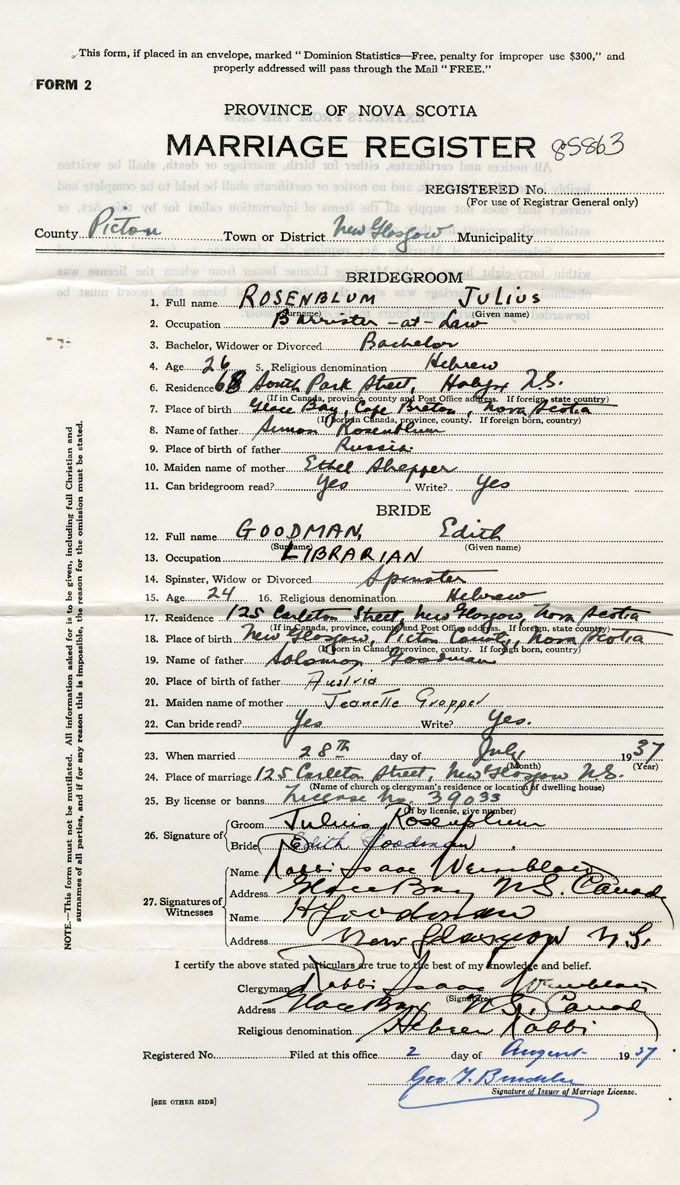 This form, if placed in an envelope, marked "Dominion Statistics—Free, penalty for improper use $300," and
properly addressed will pass through the Mail "FREE."
FORM 2
PROVINCE OF NOVA SCOTIA
MARRIAGE REGISTER 85863
REGISTERED No.
(For use of Registrar General only)
County Pictou Town or District New Glasgow Municipality
BRIDEGROOM
1. Full name ROSENBLUM JULIUS
(Surname) (Given name)
2. Occupation Barrister-at-Law
3. Bachelor, Widower or Divorced Bachelor
4. Age 26 5. Religious denomination Hebrew
6. Residence 68 South Park Street, Halifax N.S.
(If in Canada, province, county and Post Office address. If foreign, state country)
7. Place of birth Glace Bay, Cape Breton, Nova Scotia
(If born in Canada, province, county. If foreign born, country)
8. Name of father Simon Rosenblum
9. Place of birth of father Russia.
10. Maiden name of mother Ethel Shepper
11. Can bridegroom read? Yes Write? Yes
BRIDE
12. Full name GOODMAN, Edith
(Surname) (Given name)
13. Occupation LIBRARIAN
14. Spinster, Widow or Divorced Spinster
15. Age 24 16. Religious denomination Hebrew
17. Residence 125 Carleton Street, New Glasgow, Nova Scotia
(If in Canada, province, county and Post Office address. If foreign, state country)
18. Place of birth New Glasgow, Pictou County, Nova Scotia
(If born in Canada, province, county. If foreign born, country)
19. Name of father Solomon Goodman
20. Place of birth of father Austria
21. Maiden name of mother Jeanette Gropper
22. Can bride read? Yes Write? Yes.
23. When married 28th day of July 1937
(Month) (Year)
24. Place of marriage 125 Carleton Street, New Glasgow N.S.
(Name of church or clergyman's residence or location of dwelling house)
25. By license or banns License No. 39033
(If by license, give number)
26. Signature of Groom Julius Rosenblum
Bride Edith Goodman
27. Signatures of Witnesses
Name Rabbi Isaac
Address Glace Bay N.S. Canada
Name H Goodman
Address New Glasgow N.S.
I certify the above stated particulars are true to the best of my knowledge and belief.
Clergyman Rabbi Isaac
(Signature)
Address Glace Bay N.S. Canada
Religious denomination Hebrew Rabbi
Registered No. Filed at this office 2 day of August 1937
Geo. T.
Signature of Issuer of Marriage License.
[SEE OTHER SIDE]
NOTE.—This form must not be mutilated. All information asked for is to be given, including full Christian and
surnames of all parties, and if for any reason this is impossible, the reason for the omission must be stated.